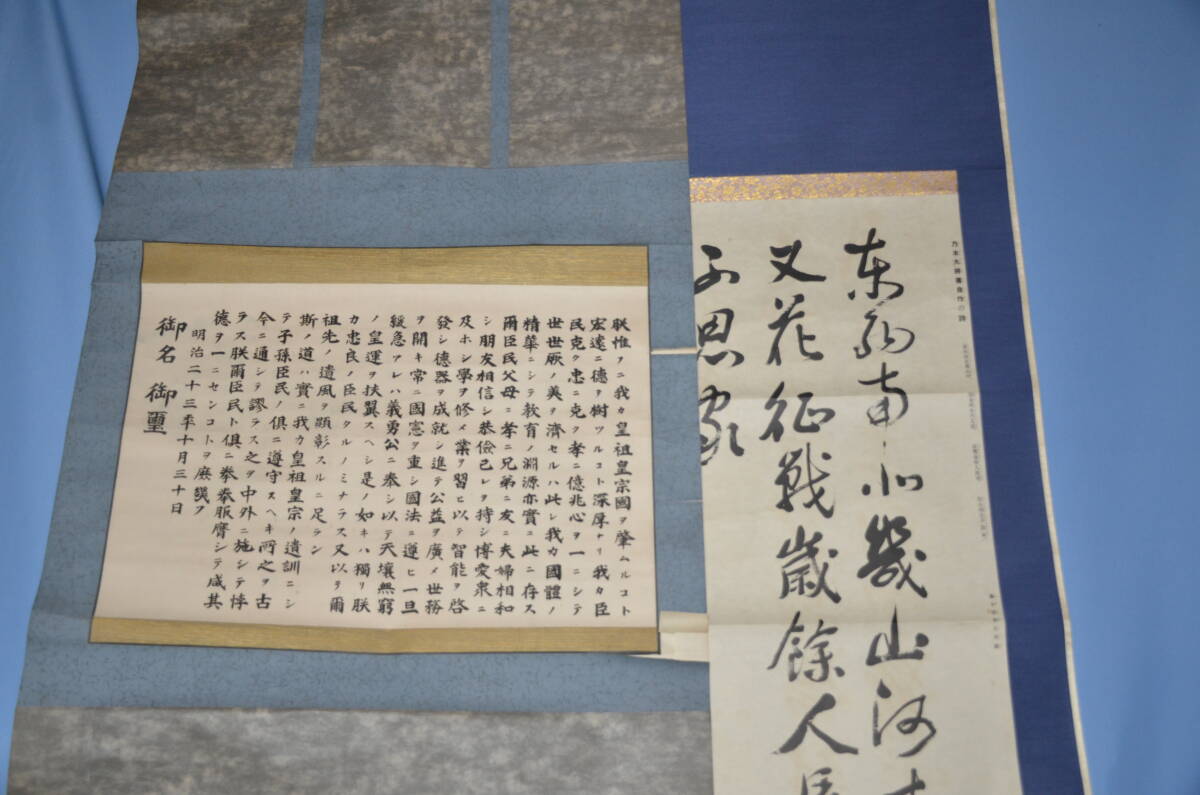 乃木大將書自作の詩
東西南北幾山河
又花征戰歲餘人
不思家
朕惟フニ我カ皇祖皇宗國ヲ肇ムルコト
宏遠ニ德ヲ樹ツルコト深厚ナリ我カ臣
民克ク忠ニ克ク孝ニ億兆心ヲ一ニシテ
世世厥ノ美ヲ濟セルハ此レ我カ國體ノ
精華ニシテ教育ノ淵源亦實ニ此ニ存ス
爾臣民父母ニ孝ニ兄弟ニ友ニ夫婦相和
シ朋友相信シ恭儉己レヲ持シ博愛衆ニ
及ホシ學ヲ修メ業ヲ習ヒ以テ智能ヲ啓
發シ德器ヲ成就シ進テ公益ヲ廣メ世務
ヲ開キ常ニ國憲ヲ重シ國法ニ遵ヒ一旦
緩急アレハ義勇公ニ奉シ以テ天壤無窮
ノ皇運ヲ扶翼スヘシ是ノ如キハ獨リ朕
カ忠良ノ臣民タルノミナラス又以テ爾
祖先ノ遺風ヲ顯彰スルニ足ラン
斯ノ道ハ實ニ我カ皇祖皇宗ノ遺訓ニシ
テ子孫臣民ノ俱ニ遵守スヘキ所之ヲ古
今ニ通シテ謬ラス之ヲ中外ニ施シテ悖
ラス朕爾臣民ト俱ニ拳拳服膺シテ咸其
德ヲ一ニセンコトヲ庶幾フ
明治二十三年十月三十日
御名 御璽